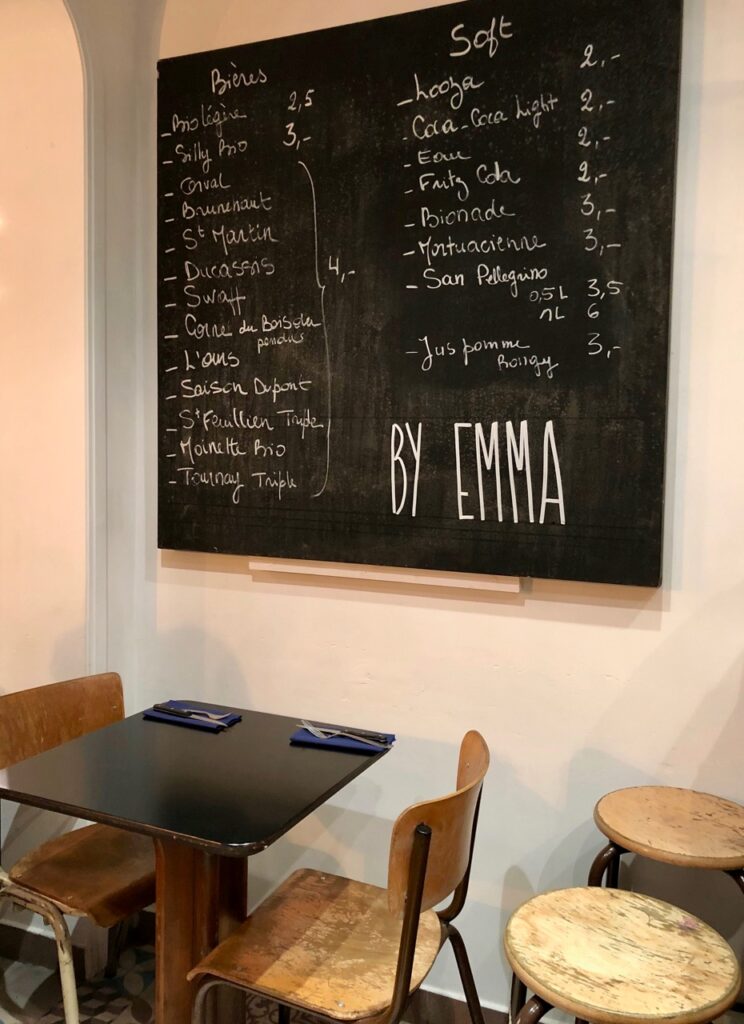 Bières
- Biolégère 2,5
- Silly Bio 3,-
- Corval
- Brunehaut
- St Martin
- Ducassis
- Swaff
- Corne du Bois
pendus
- L'ours
- Saison Dupont
- St Feuillien Triple
- Moinette Bio
- Tournay Triple
4,-
Soft
- Looza 2,-
- Coca-Coca Light 2,-
- Eau 2,-
- Fritz Cola 2,-
- Bionade 3,-
- Mortuacienne 3,-
- San Pellegrino
0,5L 3,5
1L 6
- Jus pomme 3,-
BY EMMA